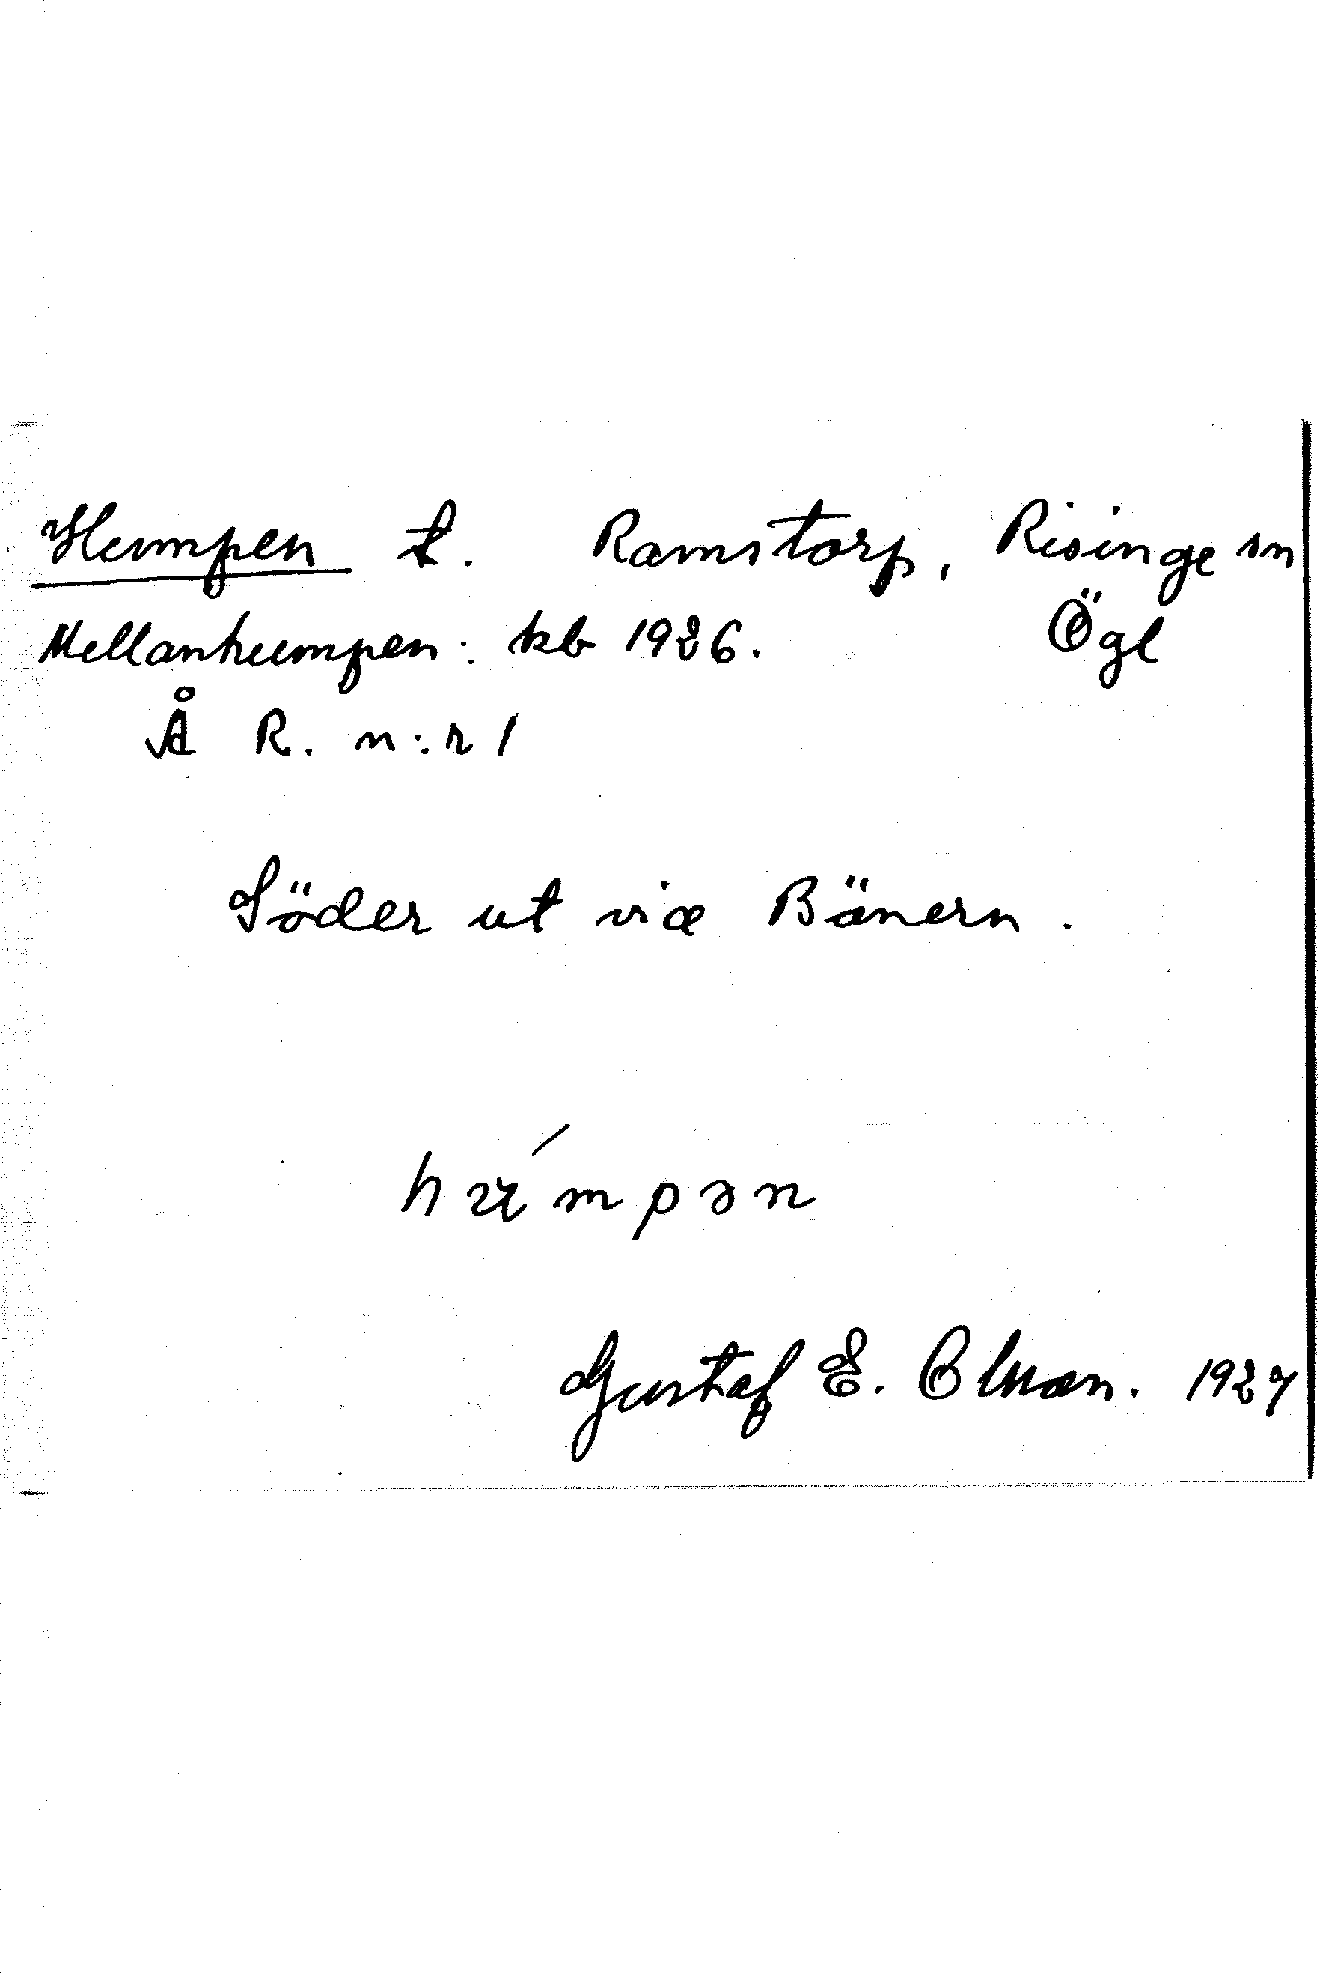 Humpen t. Ramstorp, Risinge sn
Mellanhumpen: kb 1926. Ögl
Å R. n:r 1
Söder ut via Bänern.
húmpən
Gustaf E. 1927